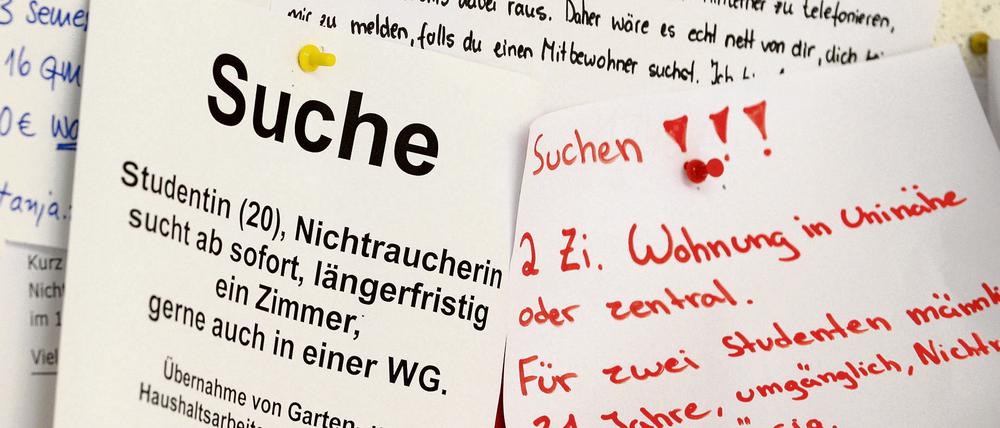 3 Semes
16 qm
0€ wa
tanja.
Kurz
Nicht
im 1
Viel
dabei raus. Daher wäre es echt nett von dir, dich
zu telefonieren,
mir zu melden, falls du einen Mitbewohner suchst. Ich
Suche
Studentin (20), Nichtraucherin
sucht ab sofort, längerfristig
ein Zimmer,
gerne auch in einer WG.
Übernahme von Garten-
Haushaltsarbeite
Suchen !!!
2 Zi. Wohnung in Uninähe
oder zentral.
Für zwei Studenten männl
Jahre, umgänglich, Nichtr